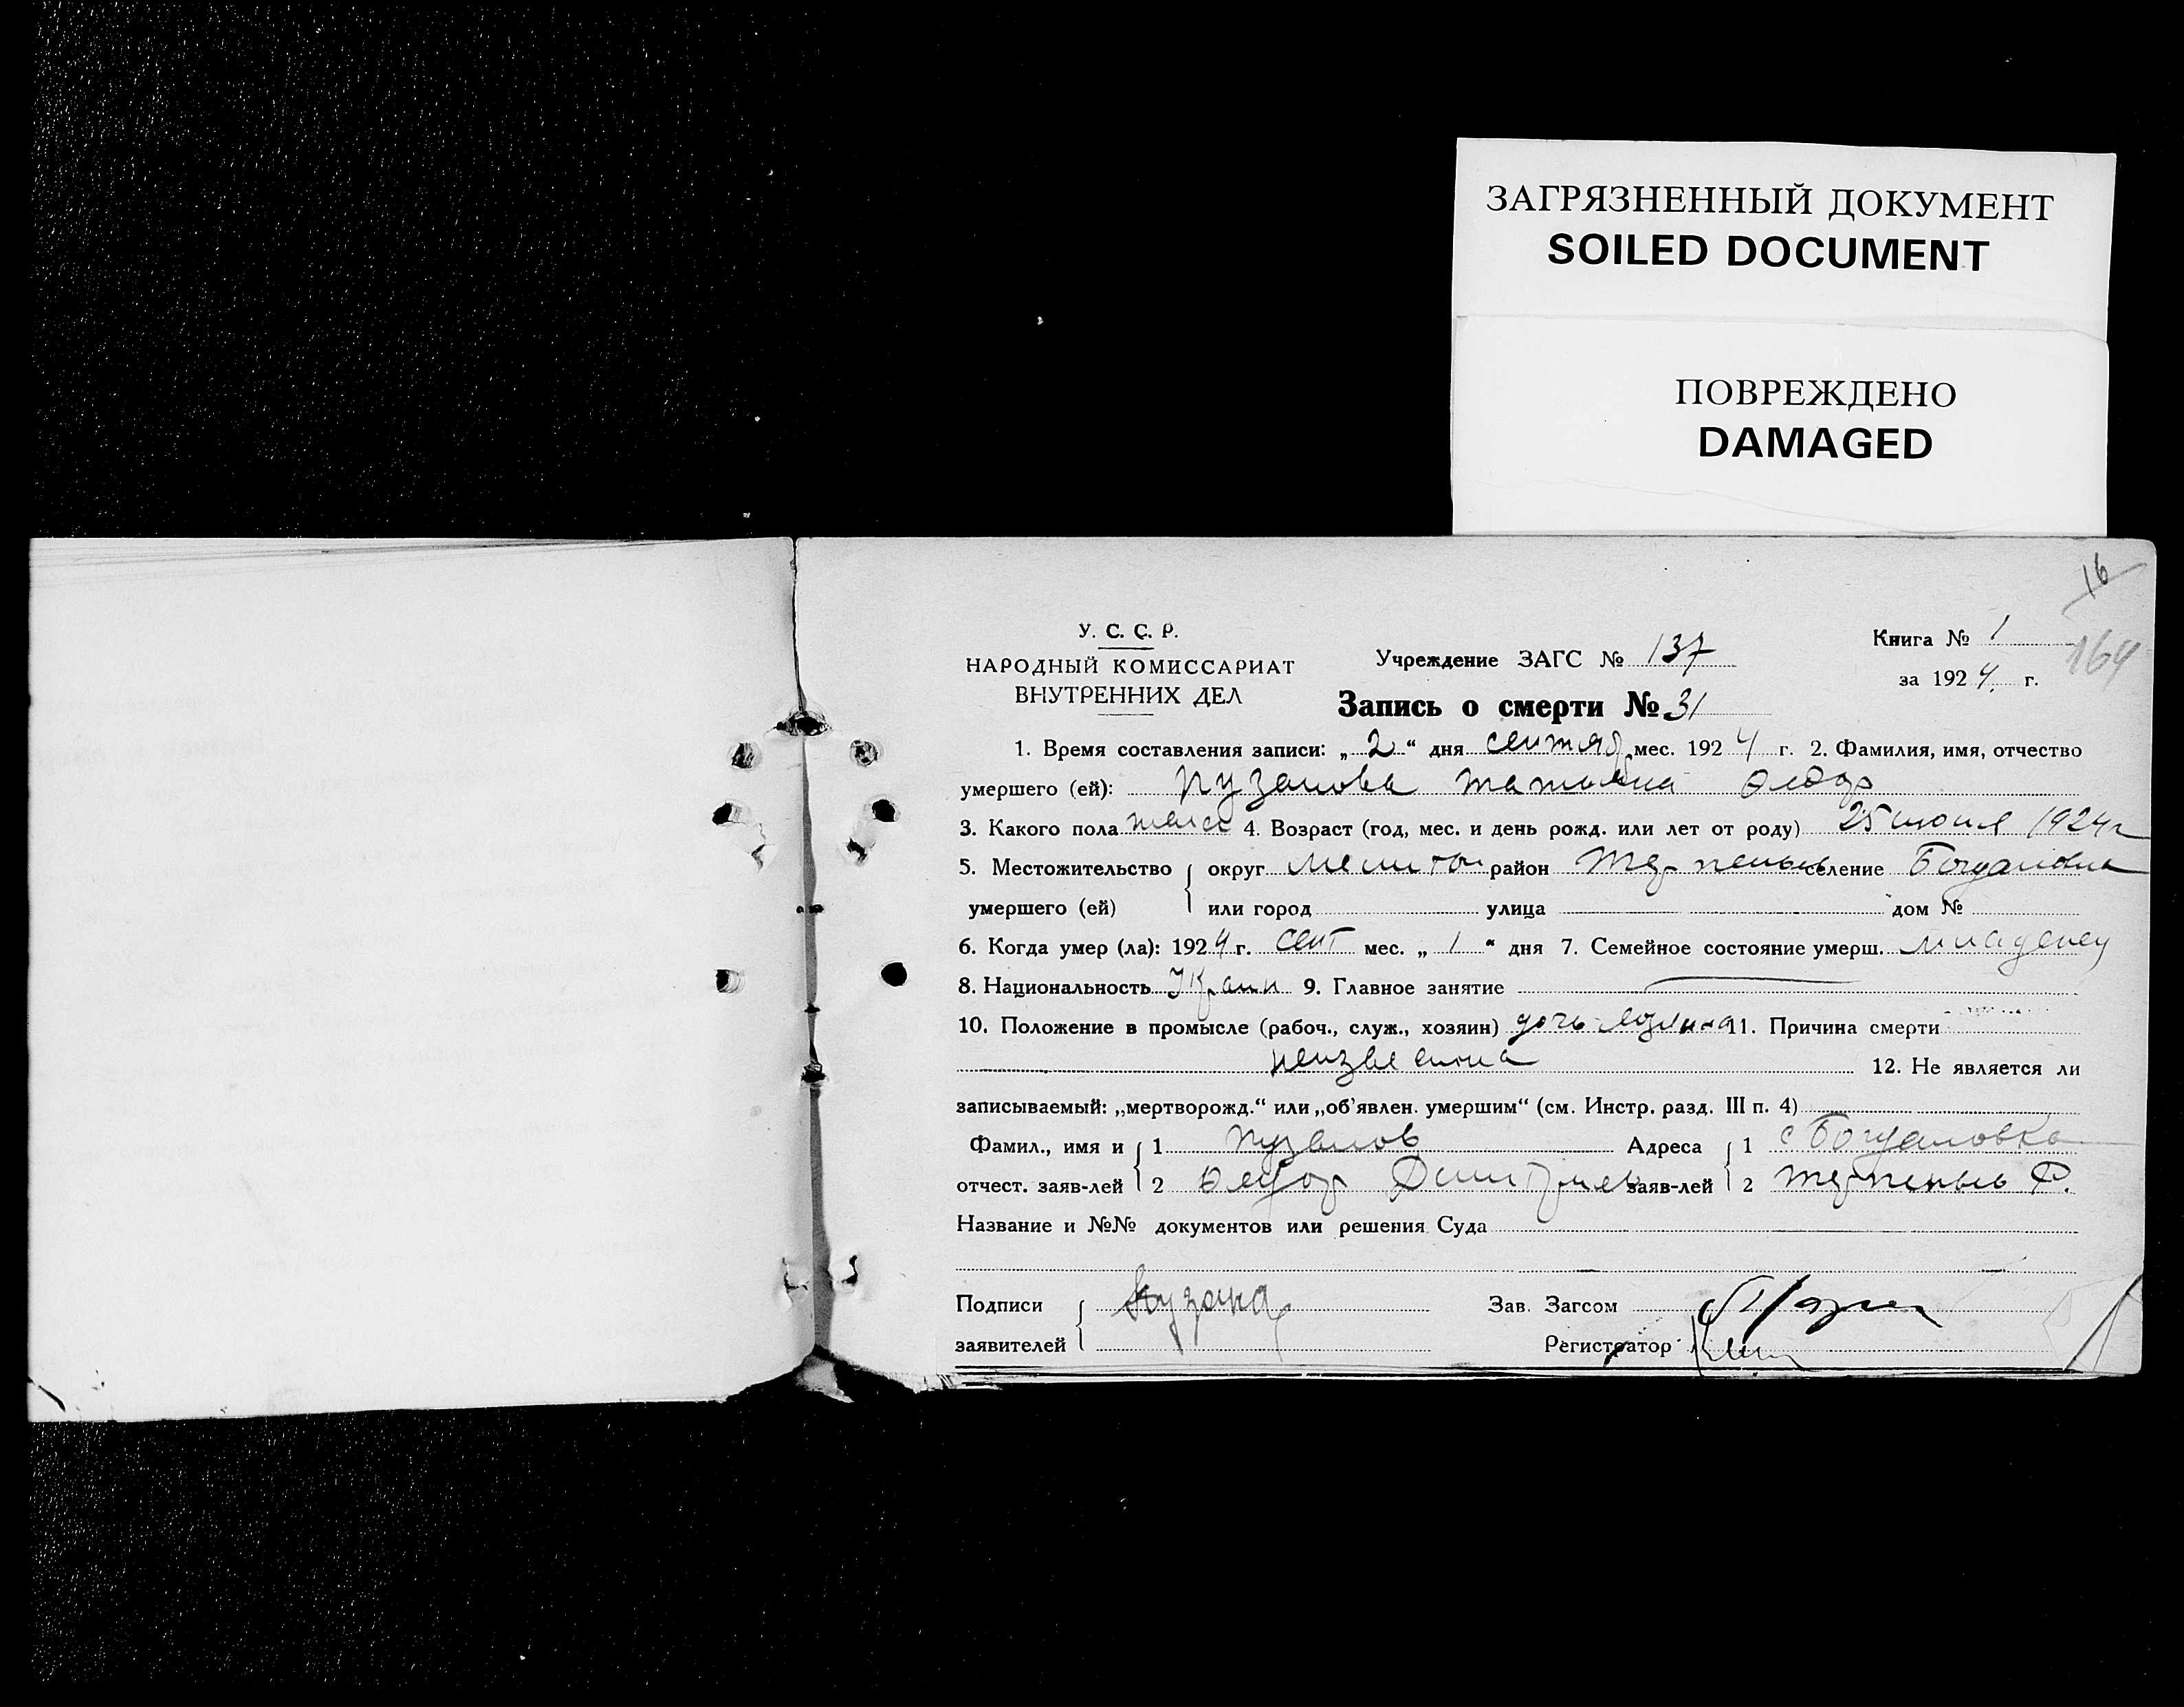 ЗАГРЯЗНЕННЫЙ ДОКУМЕНТ
SOILED DOCUMENT
ПОВРЕЖДЕНО
DAMAGED
16
164
У. С. С. Р.
НАРОДНЫЙ КОМИССАРИАТ
ВНУТРЕННИХ ДЕЛ
Учреждение ЗАГС № 137
Книга № 1
за 1924 г.
Запись о смерти № 31
1. Время составления записи: „ 2 “ дня сентяб мес. 1924 г. 2. Фамилия, имя, отчество
умершего (ей): Пузанова Татьяна Федор
3. Какого пола женс 4. Возраст (год, мес. и день рожд. или лет от роду) 25 июня 1924 г
5. Местожительство округ Мелитоп район Терпеньев селение Богдановка
умершего (ей) или город улица дом №
6. Когда умер (ла): 1924 г. сент мес. „ 1 “ дня 7. Семейное состояние умерш. младенец
8. Национальность Украин 9. Главное занятие
10. Положение в промысле (рабоч., служ., хозяин) дочь хозяина 11. Причина смерти
неизвестна 12. Не является ли
записываемый: „мертворожд.“ или „об'явлен. умершим“ (см. Инстр. разд. III п. 4)
Фамил., имя и 1 Пузанов Адреса 1 с Богдановка
отчест. заяв-лей 2 Федор Дмитриев заяв-лей 2 Терпеньев Р.
Название и №№ документов или решения Суда
Подписи Пузана Зав. Загсом
заявителей Регистратор